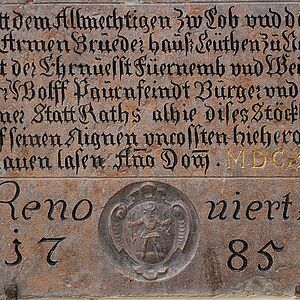 tt dem Allmechtigen Zw Lob vnd d
Armen Brüeder hauß Leüthen Zu
t der Ehrnuesst Füernemb vnd Wei
Wolff Paurnfeindt Burger vnd
ner Statt Raths alhie dises Stöck
f seinen Aignen vncossten hiehero
auen lasen. Año Dom. MDC
Reno viert
17 85